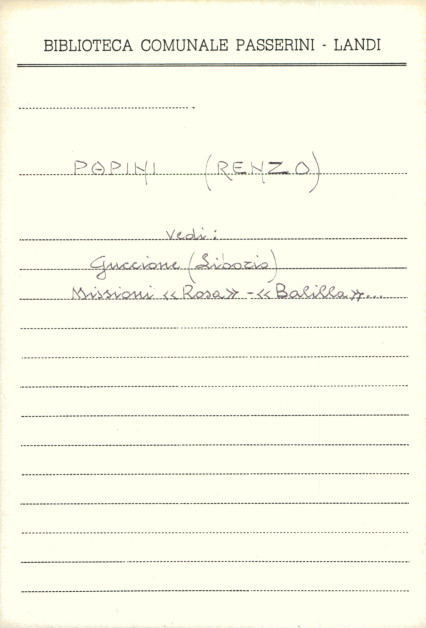 BIBLIOTECA COMUNALE PASSERINI - LANDI
PAPINI (RENZO)
vedi:
Guccione (Liborio)
Missioni «Rosa» - «Balilla»...